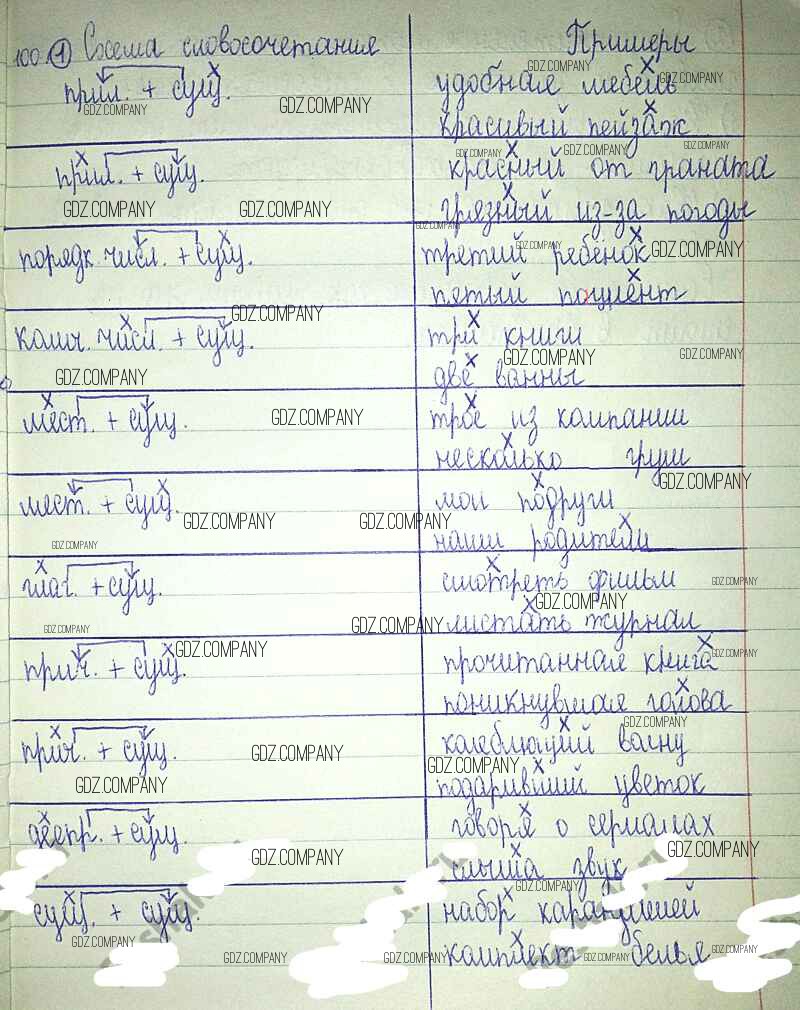 100. 1 Схема словосочетания Примеры
прил. + сущ. удобная мебель
красивый пейзаж
прил. + сущ. красный от граната
грязный из-за погоды
порядк. числ. + сущ. третий ребёнок
пятый пациент
колич. числ. + сущ. три книги
две ванны
мест. + сущ. трое из компании
несколько груш
мест. + сущ. мои подруги
наши родители
глаг. + сущ. смотреть фильм
листать журнал
прич. + сущ. прочитанная книга
поникнувшая голова
прич. + сущ. колеблющий волну
подаривший цветок
деепр. + сущ. говоря о сериалах
слыша звук
сущ. + сущ. набор карандашей
комплект белья
GDZ.COMPANY